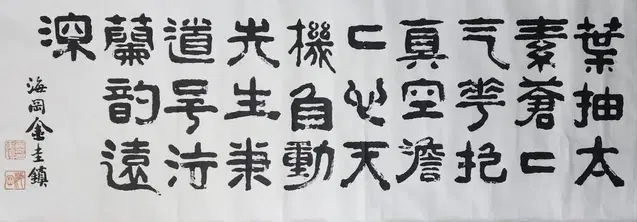 葉抽太
素蒼二
气花抱
真空澹
二心天
機自動
先生
道行
蘭韵遠
深
海岡金圭鎮